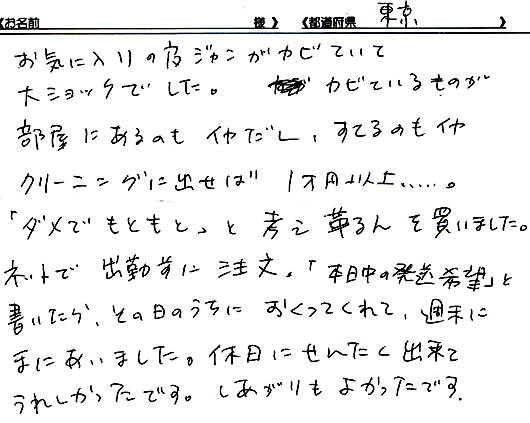 《お名前 様》 《都道府県 東京 》
お気に入りの皮ジャンがカビていて
大ショックでした。 カビているものが
部屋にあるのもイヤだし、すてるのもイヤ
クリーニングに出せば 1万円以上.....。
「ダメでもともと」と考え革るんを買いました。
ネットで出勤前に注文。「本日中の発送希望」と
書いたら、その日のうちにおくってくれて、週末に
まにあいました。休日にせんたく出来て
うれしかったです。しあがりもよかったです.